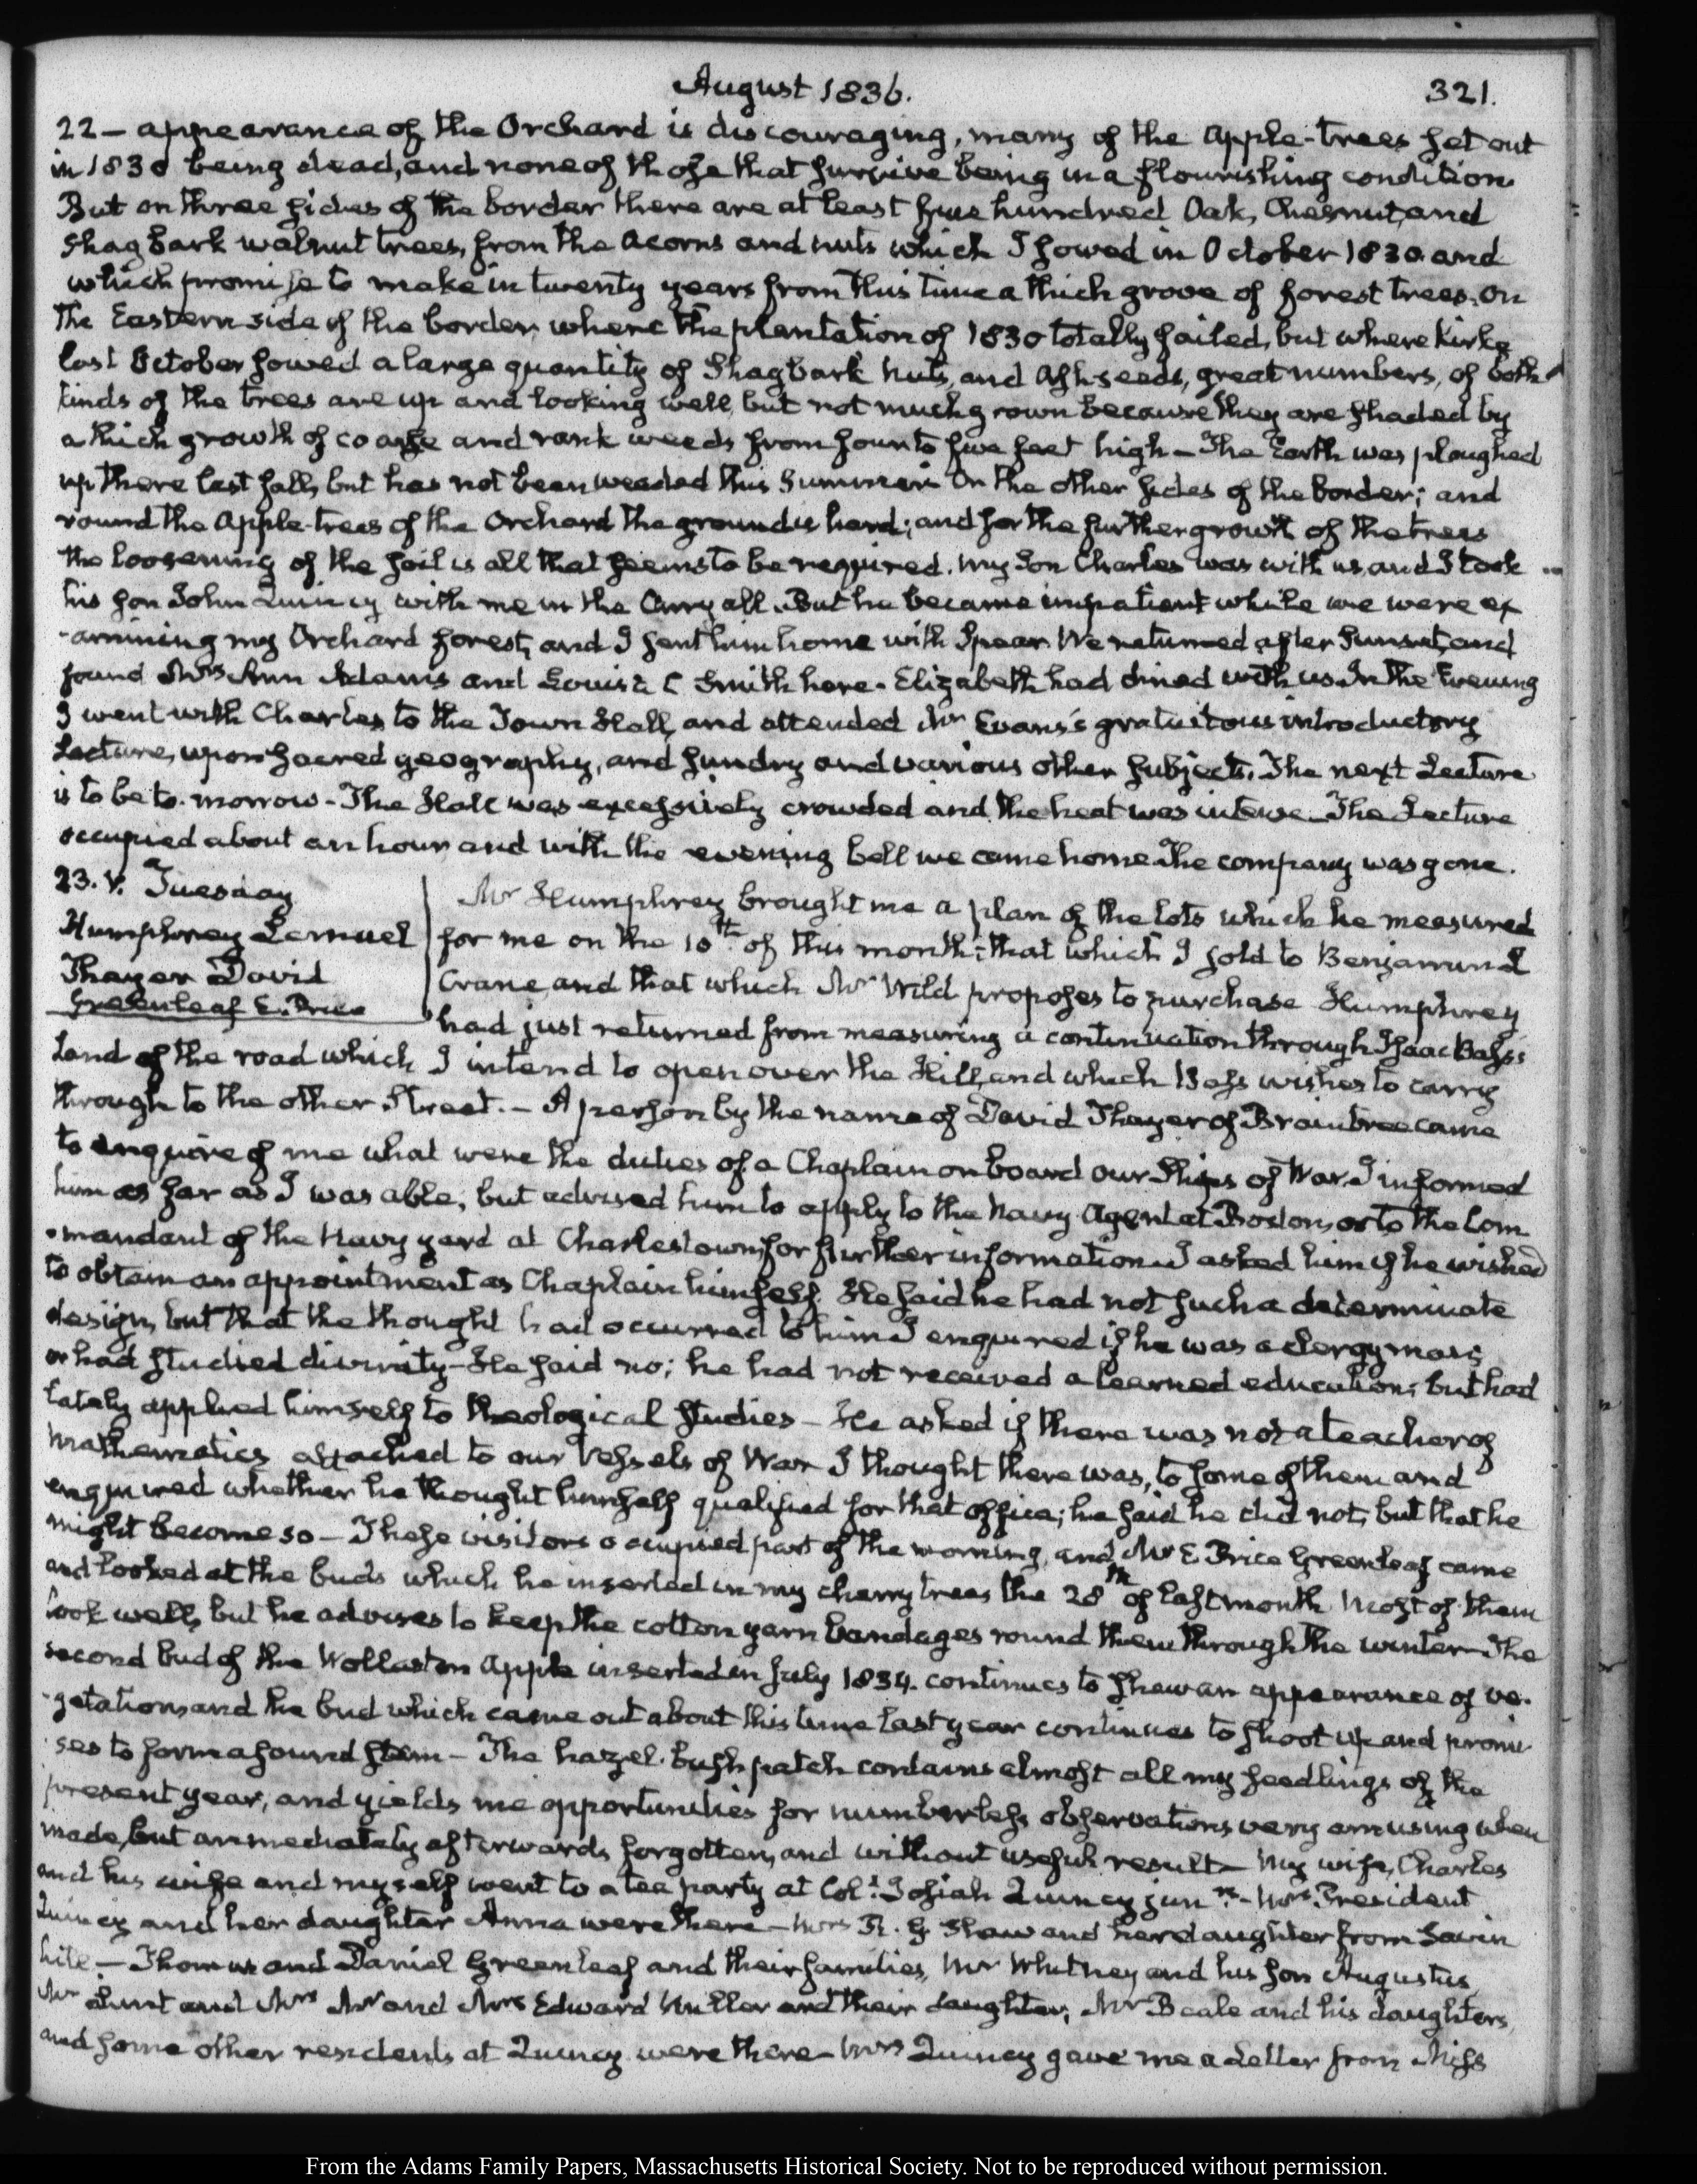 August 1836.
321.
22 — appearance of the Orchard is discouraging, many of the Apple-trees set out
in 1830 being dead, and none of those that survive being in a flourishing condition.
But on three sides of the border there are at least five hundred Oak, Chesnut, and
Shagbark walnut trees, from the acorns and nuts which I sowed in October 1830 and
which promise to make in twenty years from this time a thick grove of forest trees. On
the Eastern side of the border, where the plantation of 1830 totally failed, but where Kirke
last October sowed a large quantity of Shagbark nuts, and Ash-seeds, great numbers, of both
kinds of the trees are up and looking well, but not much grown because they are shaded by
a thick growth of coarse and rank weeds from four to five feet high — The Earth was ploughed
up there last fall, but has not been weeded this Summer. On the other sides of the border; and
round the Apple-trees of the Orchard the ground is hard; and for the further growth of the trees
the loosening of the soil is all that seems to be required. My Son Charles was with us, and I took
his son John Quincy with me in the Carryall. But he became impatient while we were ex
-amining my Orchard forest, and I sent him home with Spear. We returned after Sunset, and
found Mrs Ann Adams and Louisa C Smith here. Elizabeth had dined with us. In the Evening
I went with Charles to the Town Hall, and attended Mr Evans's gratuitous introductory
Lecture, upon sacred geography, and sundry and various other subjects. The next Lecture
is to be to-morrow. The Hall was excessively crowded and the heat was intense. The Lecture
occupied about an hour and with the evening bell we came home. The company was gone.
23. V. Tuesday
Humphrey Lemuel
Thayer David
Greenleaf E. Price
Mr Humphrey brought me a plan of the lots which he measured
for me on the 10th of this month; that which I sold to Benjamin L
Crane, and that which Mr Wild proposes to purchase Humphrey
had just returned from measuring a continuation through Isaac Bass's
Land of the road which I intend to open over the Hill, and which Bass wishes to carry
through to the other Street. — A person by the name of David Thayer of Braintree came
to enquire of me what were the duties of a Chaplain on board our Ships of War. I informed
him as far as I was able; but advised him to apply to the Navy Agent at Boston, or to the Com
-mandant of the Navy yard at Charlestown, for further information. I asked him if he wished
to obtain an appointment as Chaplain himself. He said he had not such a determinate
design, but that the thought had occurred to him. I enquired if he was a clergyman;
or had studied divinity — He said no; he had not received a learned education; but had
lately applied himself to theological studies — He asked if there was not a teacher of
Mathematics attached to our Vessels of War. I thought there was, to some of them and
enquired whether he thought himself qualified for that office; he said he did not, but that he
might become so — These visitors occupied part of the morning, and Mr E Price Greenleaf came
and looked at the buds which he inserted in my cherry trees the 28th of last month. Most of them
look well, but he advises to keep the cotton yarn bandages round them through the winter. The
second bud of the Wollaston Apple inserted in July 1834. continues to shew an appearance of ve-
-getation, and the bud which came out about this time last year continues to shoot up and promi
-ses to form a sound stem — The hazel-bush patch contains almost all my seedlings of the
present year, and yields me opportunities for numberless observations very amusing when
made, but immediately afterwards forgotten, and without useful result — My wife, Charles
and his wife and myself went to a tea party at Col. Josiah Quincy junr. — Mrs President
Quincy and her daughter Anna were there — Mrs R. G. Shaw and her daughter from Savin
hill. — Thomas and Daniel Greenleaf and their families, Mr Whitney and his son Augustus
Mr Lunt and Mrs Mr and Mrs Edward Miller and their daughter, Mr Beale and his daughters,
and some other residents at Quincy were there — Mrs Quincy gave me a Letter from Miss
From the Adams Family Papers, Massachusetts Historical Society. Not to be reproduced without permission.